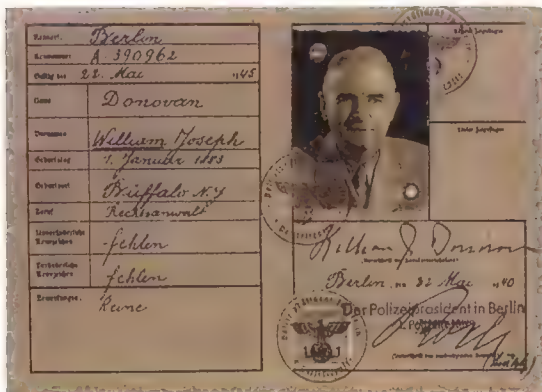 Kennort: Berlin
Kennnummer: A 390962
Gültig bis 22. Mai 1945
Name Donovan
Vornamen William Joseph
Geburtstag 1. Januar 1883
Geburtsort Buffalo N.Y
Beruf Rechtsanwalt
Unveränderliche Kennzeichen fehlen
Veränderliche Kennzeichen fehlen
Bemerkungen: Keine
William J Donovan
Berlin, den 22 Mai 1940
Der Polizeipräsident in Berlin